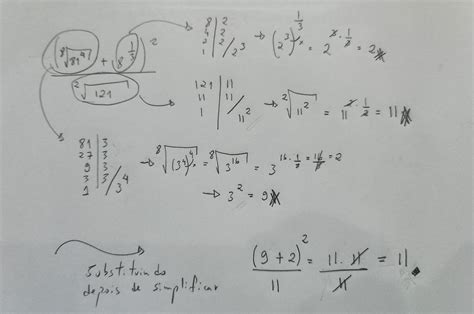 (⁸√81⁴ + 8^(1/3))² / ²√121
8 | 2
4 | 2
2 | 2
1 / 2³ → (2³)^(1/3) = 2^(3·1/3) = 2
121 | 11
11 | 11
1 / 11² → ²√11² = 11^(2·1/2) = 11
81 | 3
27 | 3
9 | 3
3 | 3
1 / 3⁴ → ⁸√(3⁴)⁴ = ⁸√3¹⁶ = 3^(16·1/8 = 16/8 = 2)
→ 3² = 9
Substituindo
depois de simplificar
(9 + 2)² / 11 = 11 · 11 / 11 = 11.